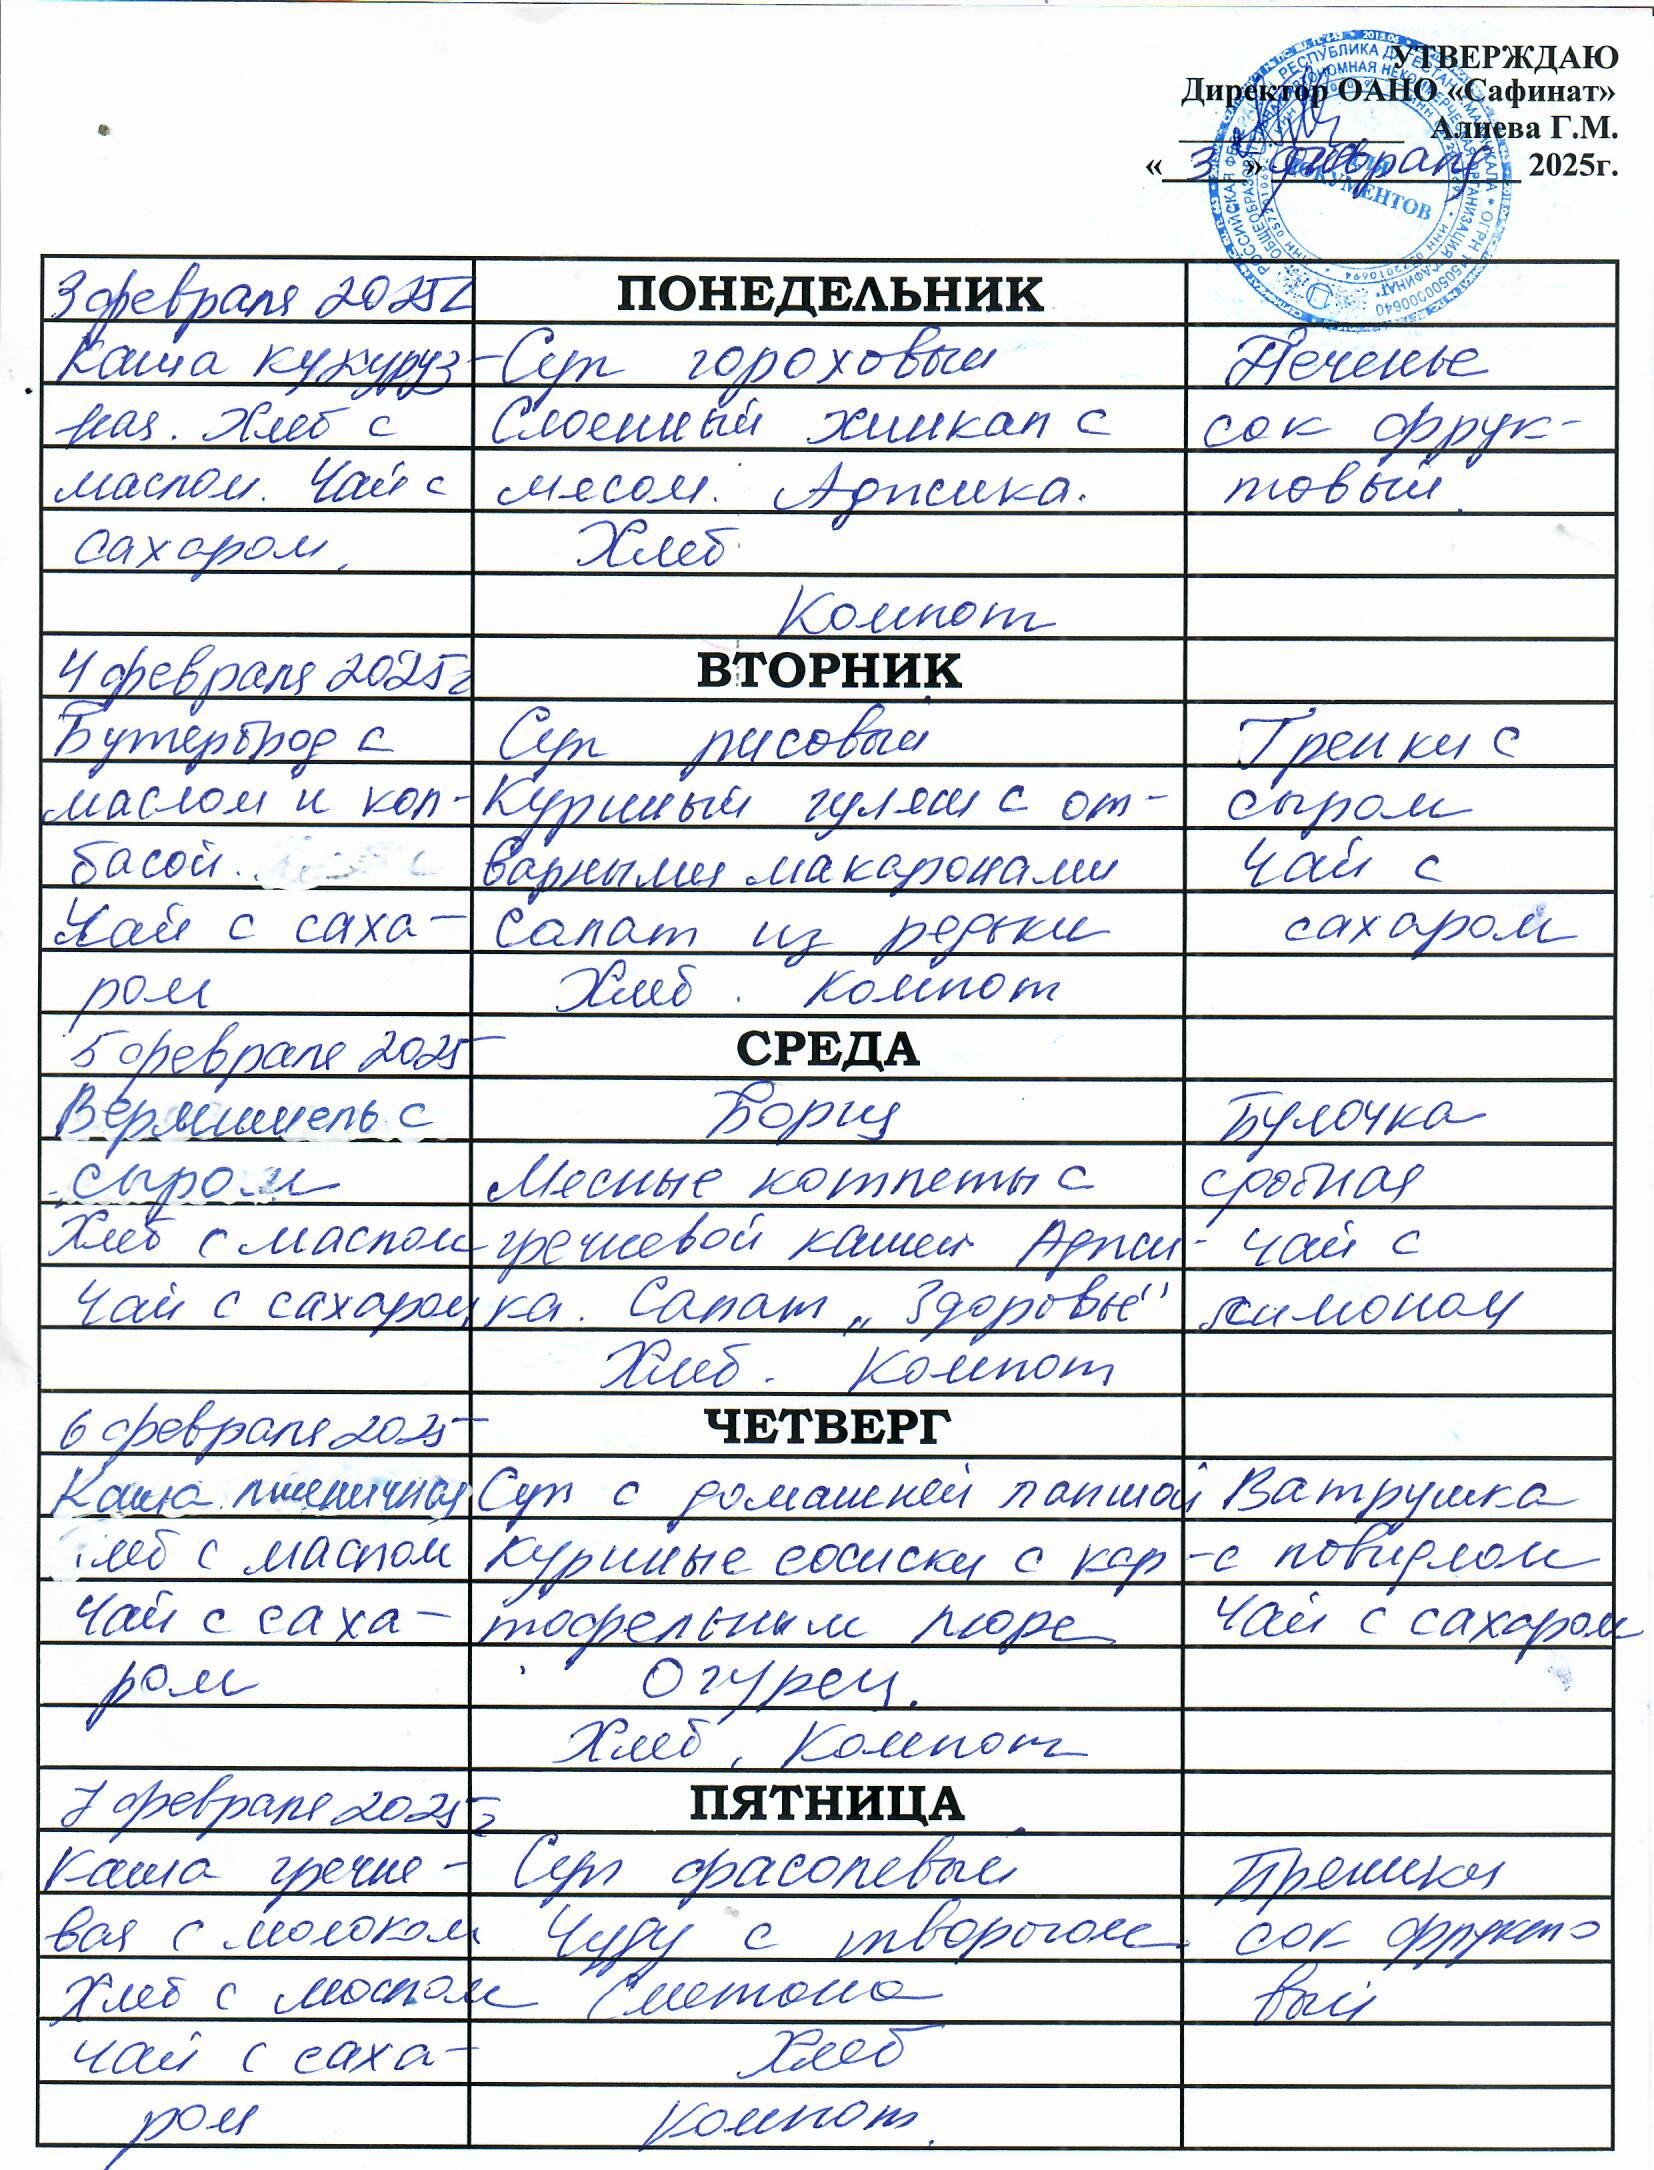 УТВЕРЖДАЮ
Директор ОАНО «Сафинат»
Алиева Г.М.
« 3 » февраля 2025г.
РОССИЙСКАЯ ФЕДЕРАЦИЯ РЕСПУБЛИКА ДАГЕСТАН
ДОКУМЕНТОВ
3 февраля 2025г ПОНЕДЕЛЬНИК
Каша кукуруз- Суп гороховый Печенье
ная. Хлеб с Слоенный хинкал с сок фрук-
маслом. Чай с мясом. Аджика. товый.
сахаром. Хлеб
Компот
4 февраля 2025г ВТОРНИК
Бутерброд с Суп рисовый Гренки с
маслом и кол- Куриный гуляш с от- сыром
басой. варными макаронами Чай с
Чай с саха- Салат из редьки сахаром
ром Хлеб. Компот
5 февраля 2025 СРЕДА
Вермишель с Борщ Булочка
сыром Мясные котлеты с сдобная
Хлеб с маслом гречневой кашей Аджи- Чай с
Чай с сахаром ка. Салат „Здоровье" лимоном
Хлеб. Компот
6 февраля 2025 ЧЕТВЕРГ
Каша пшеничная Суп с домашней лапшой Ватрушка
леб с маслом Куриные сосиски с кар- с повидлом
Чай с саха- тофельным пюре Чай с сахаром
ром Огурец.
Хлеб, Компот
7 февраля 2025г ПЯТНИЦА
Каша гречне- Суп фасолевый Пряники
вая с молоком Чуду с творогом сок фрукто
Хлеб с маслом Сметана вый
Чай с саха- Хлеб
ром Компот.